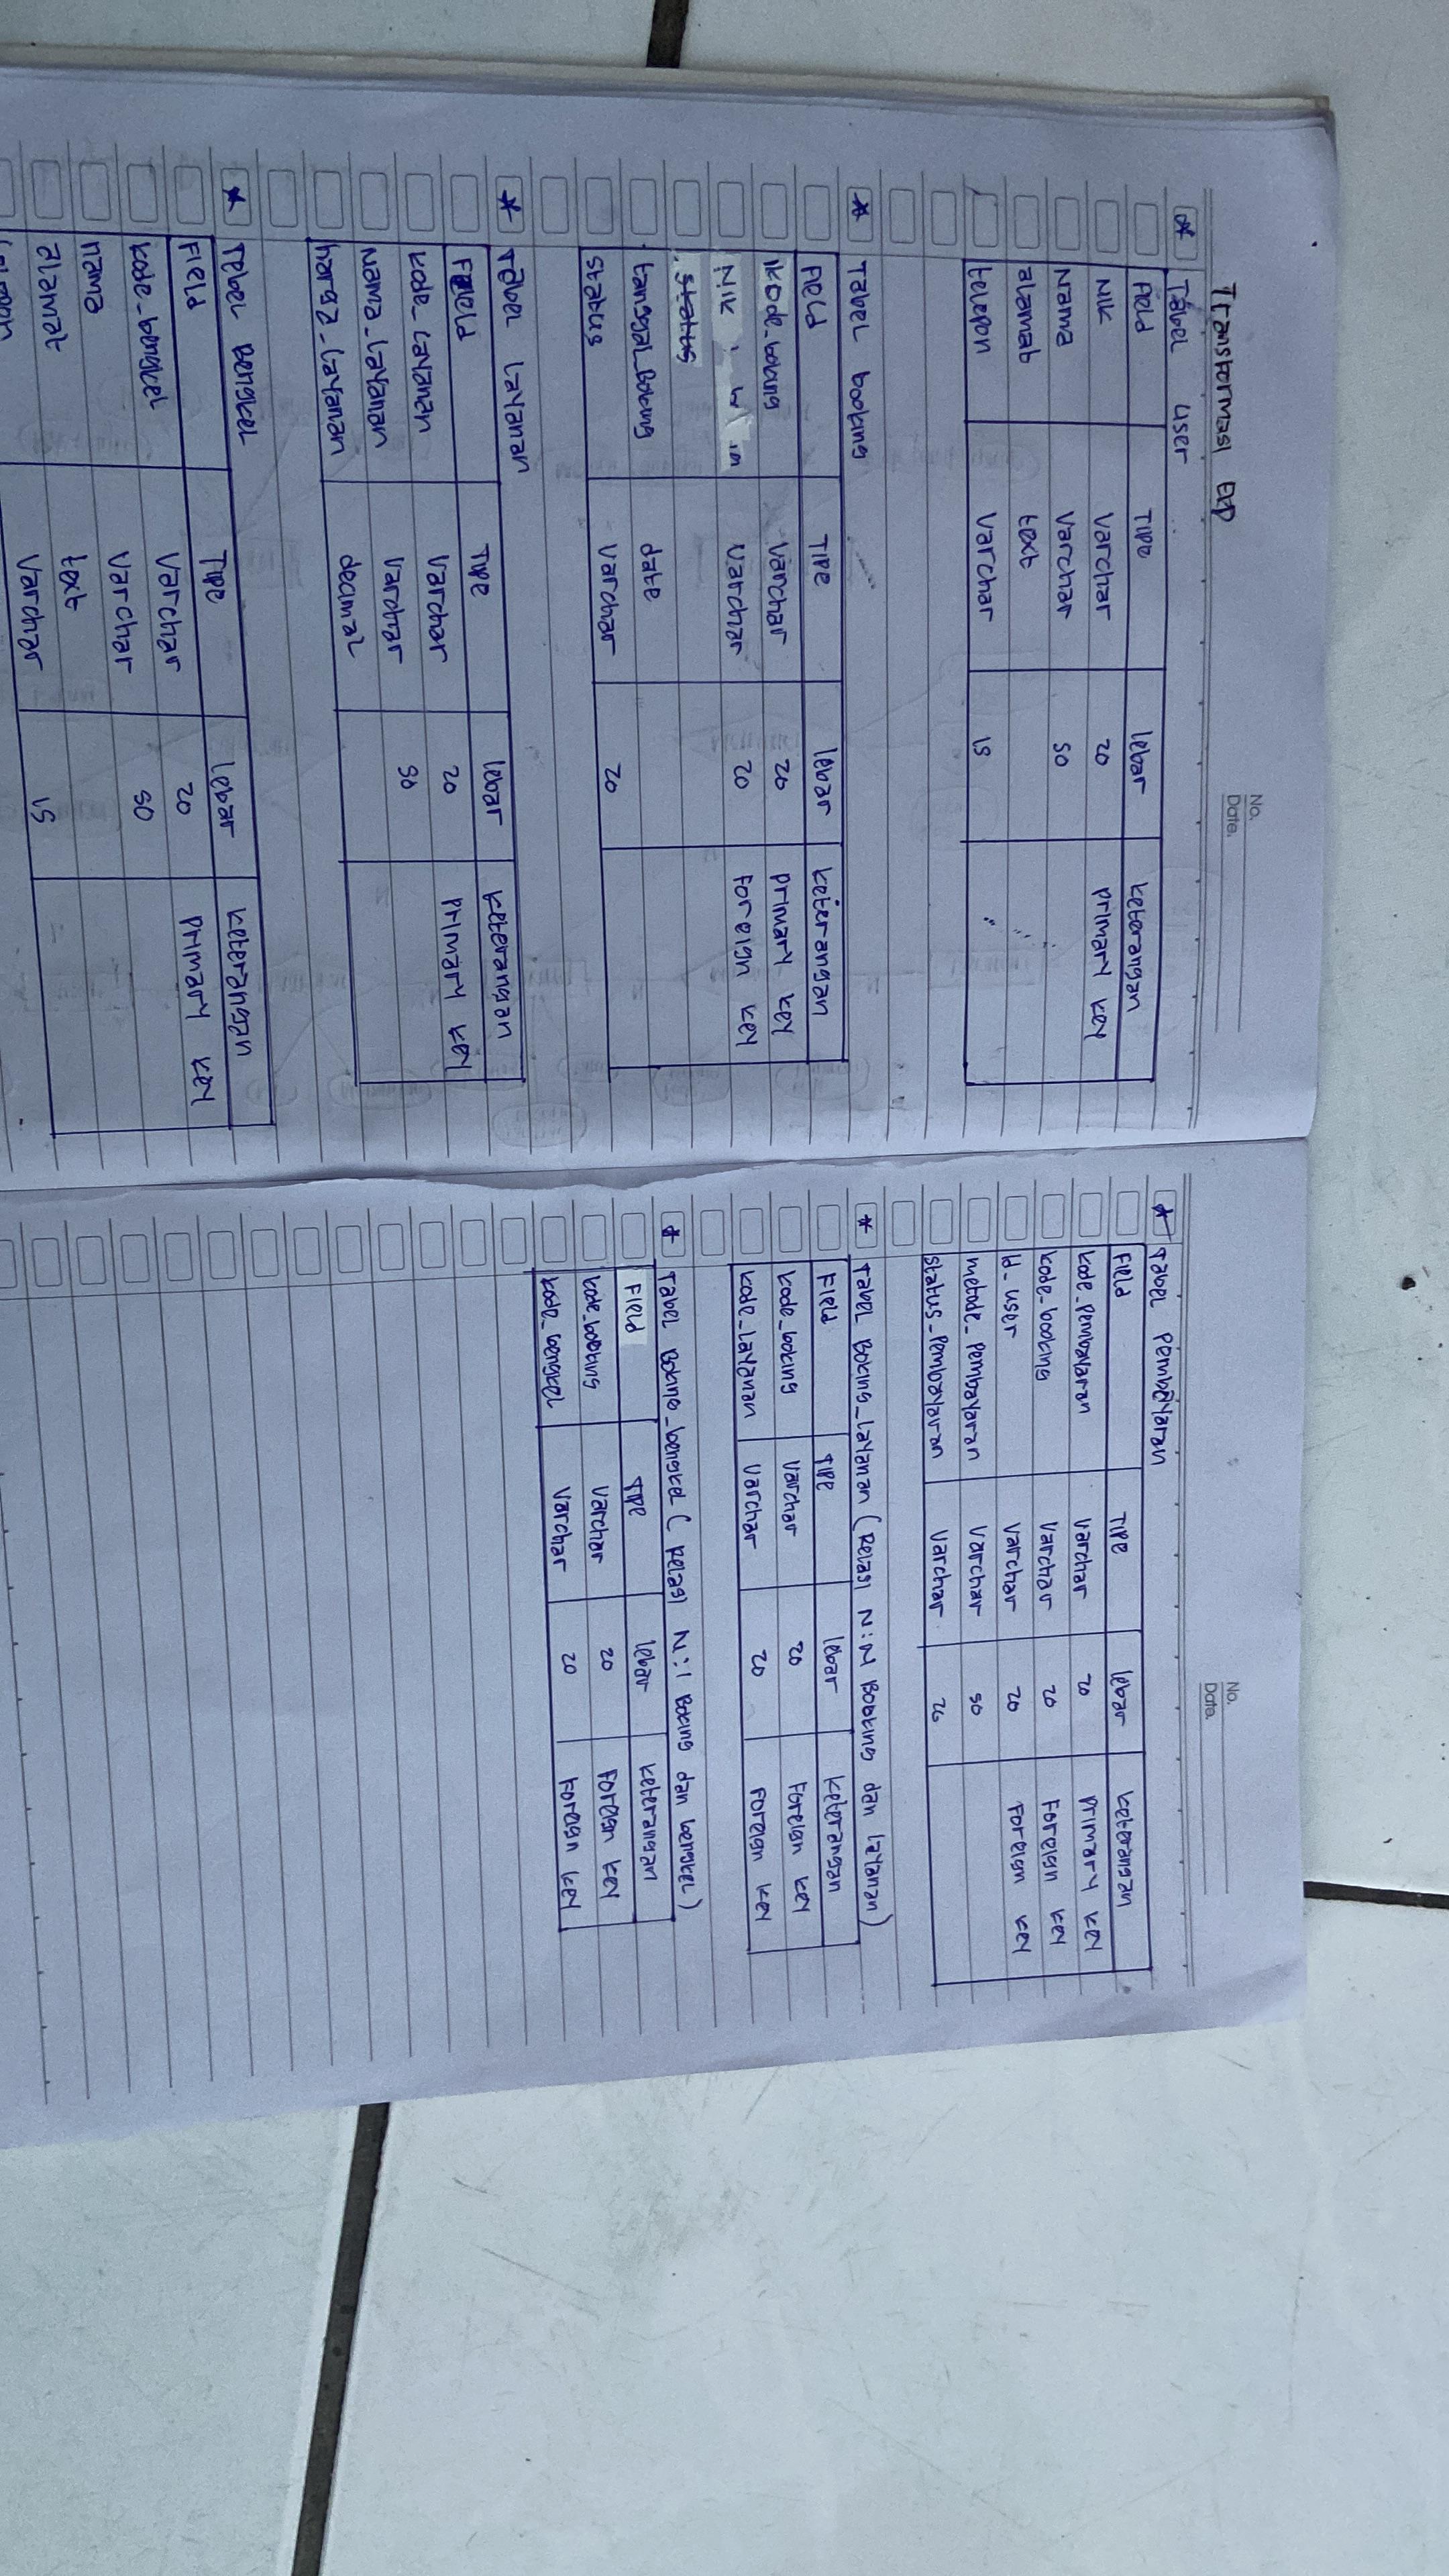 No.
Date.
Transformasi ERD
Tabel user
Field TIPE lebar keterangan
NIK Varchar 20 Primary key
Nama Varchar 50
alamat text
telepon Varchar 15
Tabel booking
Field TIPE lebar keterangan
kode_boking Varchar 20 Primary key
NIK Varchar 20 Foreign key
status
tanggal_Boking date
status Varchar 20
Tabel Layanan
Field TIPE lebar keterangan
kode_Layanan Varchar 20 Primary key
Nama_Layanan Varchar 50
harga_Layanan decimal
Tebel Bengkel
Field TIPE lebar keterangan
kode_bengkel Varchar 20 Primary key
nama Varchar 50
alamat text
Varchar 15
No.
Date.
Tabel Pembayaran
Field TIPE lebar keterangan
kode_Pembayaran Varchar 20 Primary key
kode_booking Varchar 20 Foreign key
Id_user Varchar 20 Foreign key
metode_Pembayaran Varchar 50
status_Pembayaran Varchar 20
Tabel Boking_Layanan (Relasi N:M Booking dan layanan)
Field TIPE lebar keterangan
kode_boking Varchar 20 Foreign key
kode_Layanan Varchar 20 Foreign key
Tabel Boking_bengkel (Relasi N:1 Boking dan bengkel)
Field TIPE lebar keterangan
kode_booking Varchar 20 Foreign key
kode_bengkel Varchar 20 Foreign key